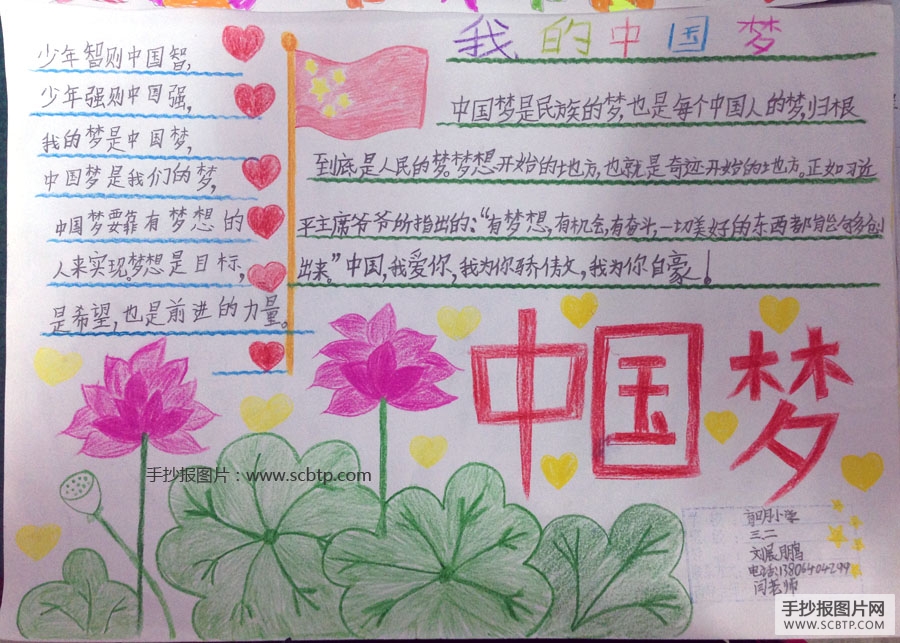 少年智则中国智,
少年强则中国强,
我的梦是中国梦,
中国梦是我们的梦,
中国梦要靠有梦想的
人来实现。梦想是目标,
是希望,也是前进的力量。
我的中国梦
中国梦是民族的梦,也是每个中国人的梦,归根
到底是人民的梦。梦想开始的地方,也就是奇迹开始的地方。正如习近
平主席爷爷所指出的:“有梦想,有机会,有奋斗,一切美好的东西都能够创
出来。”中国,我爱你,我为你骄傲,我为你自豪!
中国梦
手抄报图片:www.scbtp.com
明小学
三二
刘晨鹏
电话:13806404299
闫老师
手抄报图片网
WWW.SCBTP.COM